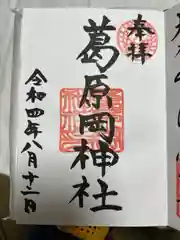 奉拝
葛原岡神社
令和四年八月十二日